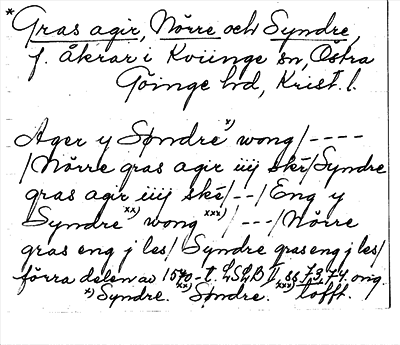 * Gras agir, Nörre och Syndre,
f. åkrar i Kviinge sn, Östra
Göinge hd, Krist. l.
Ager y Søndre x) wong /----
/Nörre gras agir iiij ske/Syndre
gras agir iiij ske/--/Eng y
Syndre xx) wong xxx) /---/Nörre
gras eng j les/ Syndre gras eng j les/
förra delen av 1570-t. LSLB II, ss 73, 74. orig.
x) Syndre. xx) Søndre. xxx) tofft.